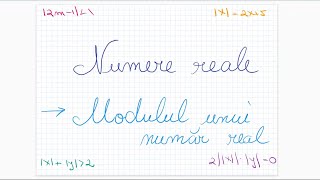 |2m-1|<1
|x|-2x+5
Numere reale
→ Modulul unui
număr real
|x|+|y|>2
2||x|-|y|=0